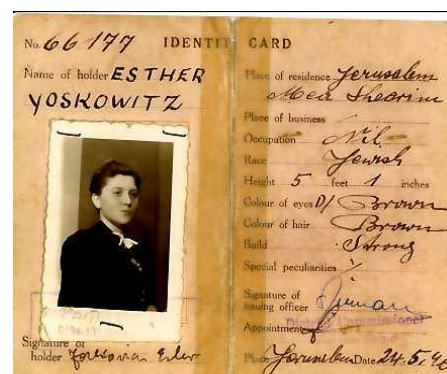 No. 66177 IDENTITY CARD
Name of holder ESTHER
YOSKOWITZ
Signature of
holder
Place of residence Jerusalem
Mea Shearim
Place of business
Occupation Nil
Race Jewish
Height 5 feet 1 inches
Colour of eyes D/ Brown
Colour of hair Brown
Build Strong
Special peculiarities /
Signature of
issuing officer
Appointment Commissioner
Place Jerusalem Date 24.5.